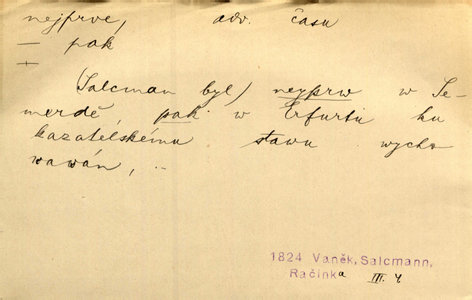 nejprve, adv. času
— pak
+
(Salcman byl) nejprw w Se-
merdě, pak w Erfurtu ku
kazatelskému stawu wycho
wáwán, ..
1824 Vaněk, Salcmann,
Račinka III. 4.